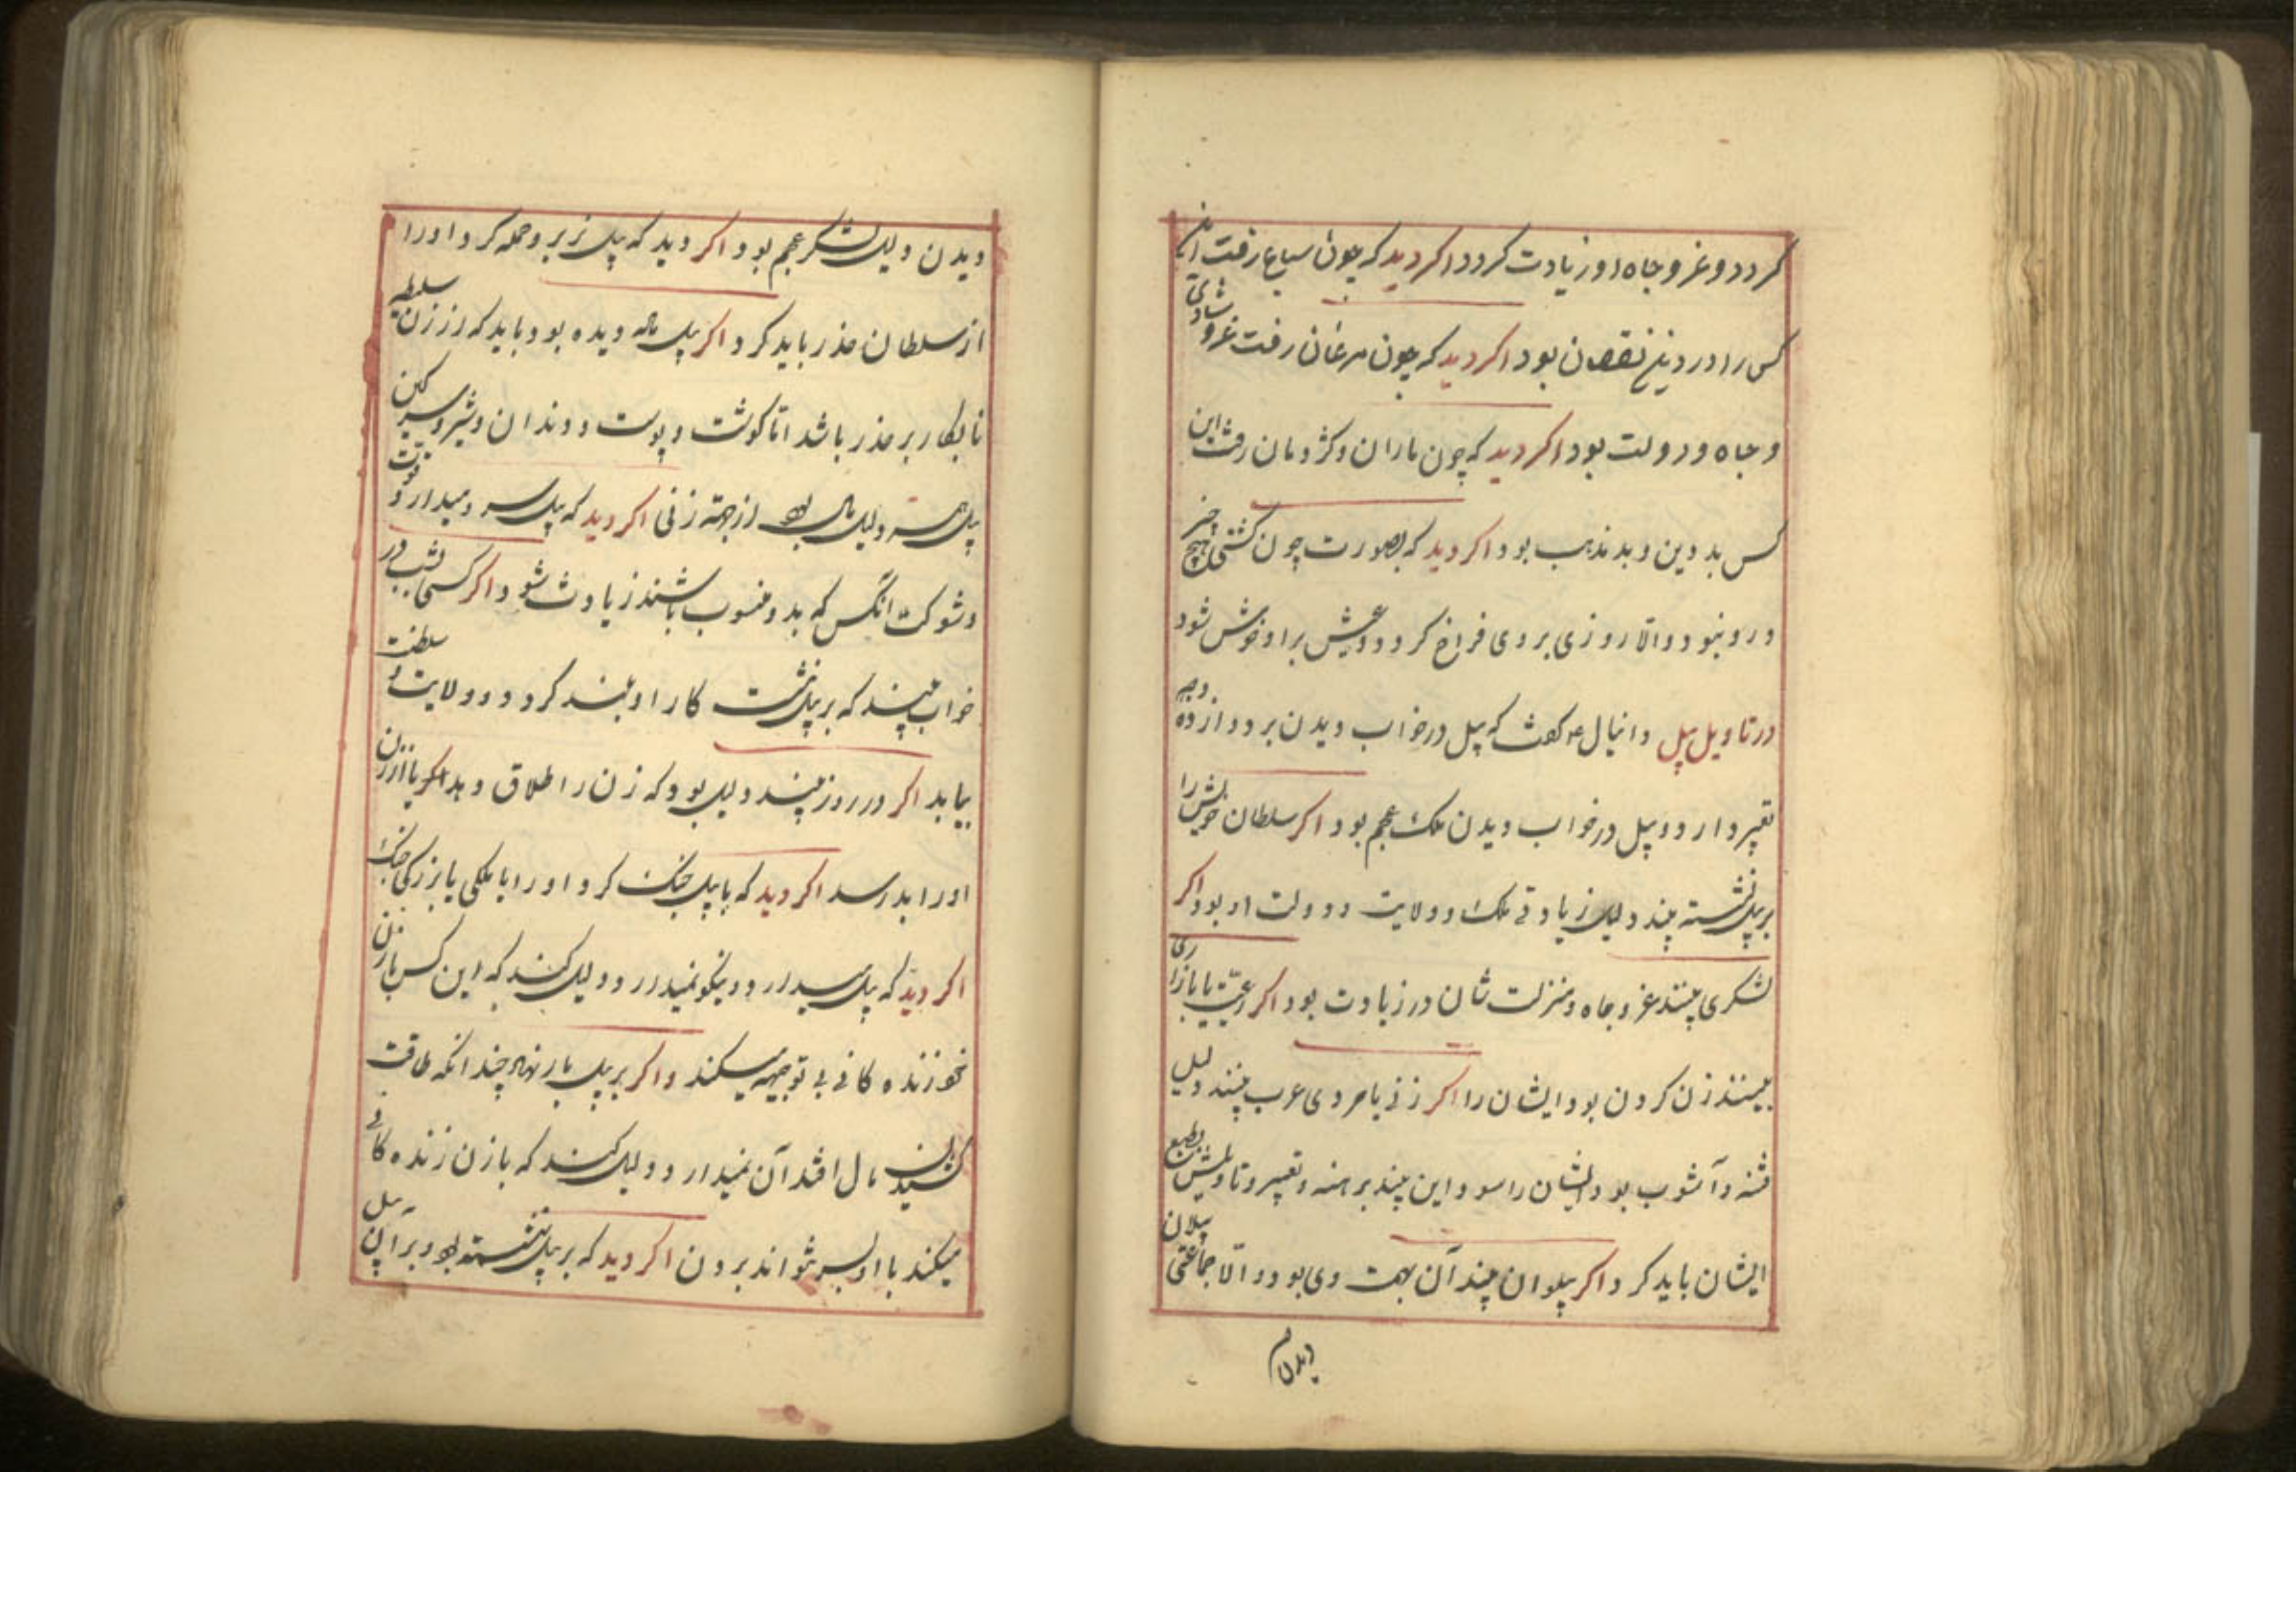 کردد و عز و جاه او زیادت کردد اکر دید که چون سباع رفت این
کس را در دین نقصان بود اکر دید که چون مرغان رفت عز و شادی
و جاه و دولت بود اکر دید که چون ماران و کژدمان رفت این
کس بد دین و بد مذهب بود اکر دید که بصورت چون کشتی هیچ خیر
درو نبود والا روزی بر وی فراخ کردد و عیش براو خوش شود
در تاویل پیل دانیال ع کفت که پیل در خواب دیدن بر دوازده وجه
تعبیر دارد و پیل در خواب دیدن ملک عجم بود اکر سلطان خویش را
بر پیل نشسته بیند دلیل زیادتی ملک و ولایت و دولت او بود اکر
لشکری بینند عز و جاه و منزلت شان در زیادت بود اکر رعیت یا بازاری
بینند زن کردن بود ایشان را اکر زنی یا مردی عرب بینند دلیل
فتنه و آشوب بود ایشان را و این چند بر هنه و تعبیر و تاویلش بطبع
ایشان باید کرد و اکر پیلوان بیند آن بهت وی بود والا جماعتی پیلان
دیدن
دیدن دلیل لشکر عجم بود اکر دید که پیل نر برو حمله کرد او را
از سلطان حذر باید کرد و اکر پیل ماده دیده بود باید که از زن سلطیه
نابکار بر حذر باشد اما کوشت و پوست و دندان و شیر و سرکین
پیل همه دلیل مال بود از جهة زنی اکر دید که پیل میدارد قوت
و شوکت آنکس که بدو منسوب باشند زیادت شود و اکر کسی شب در
خواب بیند که بر پیل نشست کار او بلند کردد و ولایت و سلطنت
بیابد اکر در روز بیند دلیل بود که زن را طلاق دهد اکر یا آزار زن
او را بد رسد اکر دید که با پیل جنک کرد او را با ملکی یا بزرکی جنک
اکر دید که پیل میدارد و نیکو نمیدارد دلیل کند که این کس با زن
خود زنده کانی بی توجیه میکند و اکر بر پیل بار نهاد چندانکه طاقت
کشیدن مال افتد آن نمیدارد دلیل کند که با زن زنده کانی
میکند با او بسر نتواند بردن اکر دید که بر پیل نشسته بود و بر آن پیل